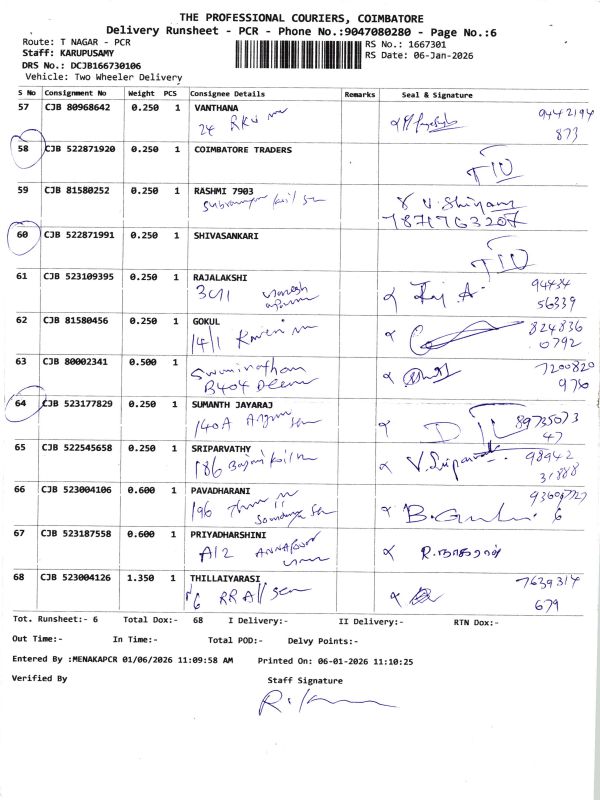 THE PROFESSIONAL COURIERS, COIMBATORE
Delivery Runsheet - PCR - Phone No.:9047080280 - Page No.:6
Route: T NAGAR - PCR
RS No.: 1667301
Staff: KARUPUSAMY
RS Date: 06-Jan-2026
DRS No.: DCJB166730106
Vehicle: Two Wheeler Delivery
S No Consignment No Weight PCS Consignee Details Remarks Seal & Signature
57 CJB 80968642 0.250 1 VANTHANA
24 9442194
873
58 CJB 522871920 0.250 1 COIMBATORE TRADERS
59 CJB 81580252 0.250 1 RASHMI 7903
V. Shiyam
7871763207
60 CJB 522871991 0.250 1 SHIVASANKARI
61 CJB 523109395 0.250 1 RAJALAKSHI
3C11 Raj A 94434
56339
62 CJB 81580456 0.250 1 GOKUL
14/1 824836
0792
63 CJB 80002341 0.500 1
Swaminathan 7200820
B404
64 CJB 523177829 0.250 1 SUMANTH JAYARAJ
140A 89735073
47
65 CJB 522545658 0.250 1 SRIPARVATHY
186 V. Sriparvati 98942
31888
66 CJB 523004106 0.600 1 PAVADHARANI
196
67 CJB 523187558 0.600 1 PRIYADHARSHINI
A12 R. நாகராஜ்
68 CJB 523004126 1.350 1 THILLAIYARASI
7639314
679
Tot. Runsheet:- 6 Total Dox:- 68 I Delivery:- II Delivery:- RTN Dox:-
Out Time:- In Time:- Total POD:- Delvy Points:-
Entered By :MENAKAPCR 01/06/2026 11:09:58 AM Printed On: 06-01-2026 11:10:25
Verified By Staff Signature